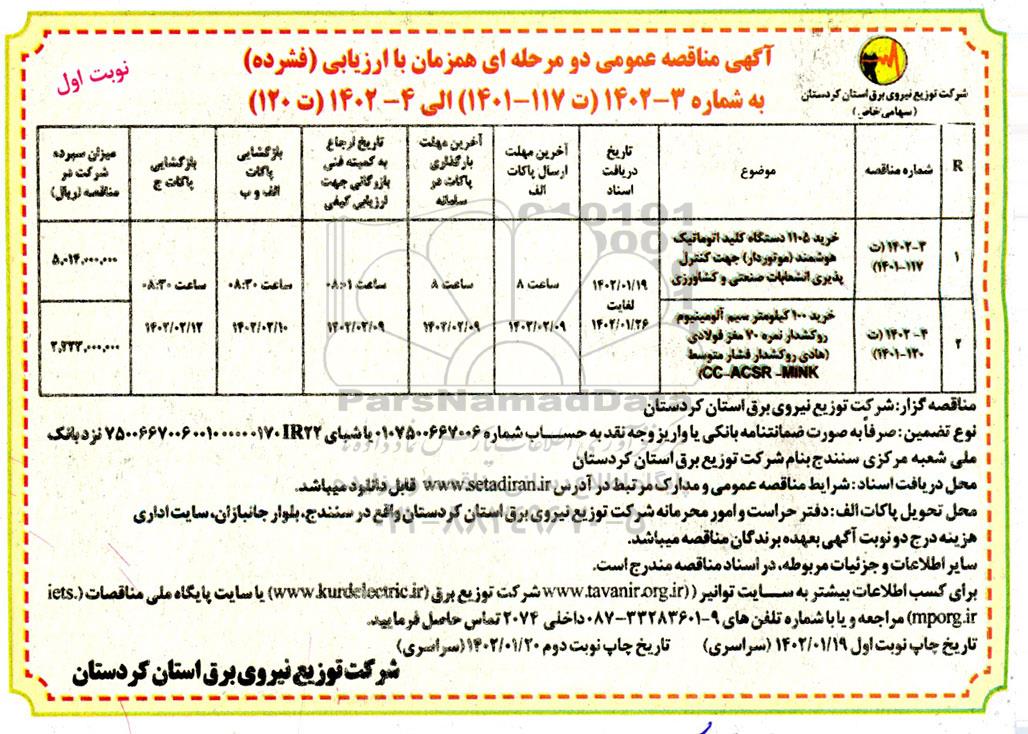 نوبت اول
شرکت توزیع نیروی برق استان کردستان
(سهامی خاص)
آگهی مناقصه عمومی دو مرحله ای همزمان با ارزیابی (فشرده)
به شماره ۳-۱۴۰۲ (ت ۱۱۷-۱۴۰۱) الی ۴-۱۴۰۲ (ت ۱۲۰)
R
شماره مناقصه
موضوع
تاریخ
دریافت
اسناد
آخرین مهلت
ارسال پاکات
الف
آخرین مهلت
بارگذاری
پاکات در
سامانه
تاریخ ارجاع
به کمیته فنی
بازرگانی جهت
ارزیابی کیفی
بازگشایی
پاکات
الف و ب
بازگشایی
پاکات ج
میزان سپرده
شرکت در
مناقصه (ریال)
۱
۳-۱۴۰۲ (ت
۱۱۷-۱۴۰۱)
خرید ۱۱۰۵ دستگاه کلید اتوماتیک
هوشمند (موتوردار) جهت کنترل
پذیری انشعابات صنعتی و کشاورزی
۱۴۰۲/۰۱/۱۹
لغایت
۱۴۰۲/۰۱/۲۶
ساعت ۸
۱۴۰۲/۰۲/۰۹
ساعت ۸
۱۴۰۲/۰۲/۰۹
ساعت ۰۸:۰۱
۱۴۰۲/۰۲/۰۹
ساعت ۰۸:۳۰
۱۴۰۲/۰۲/۱۰
ساعت ۰۸:۳۰
۱۴۰۲/۰۲/۱۲
۵,۰۱۴,۰۰۰,۰۰۰
۲
۴-۱۴۰۲ (ت
۱۲۰-۱۴۰۱)
خرید ۱۰۰ کیلومتر سیم آلومینیوم
روکشدار نمره ۷۰ مغز فولادی
(هادی روکشدار فشار متوسط
CC-ACSR -MINK)
۲,۲۲۲,۰۰۰,۰۰۰
ParsNamadData
مناقصه گزار: شرکت توزیع نیروی برق استان کردستان
نوع تضمین: صرفاً به صورت ضمانتنامه بانکی یا واریز وجه نقد به حساب شماره ۰۱۰۷۵۰۰۶۶۷۰۰۶ با شبای IR۲۲۰۱۷۰۰۰۰۰۰۰۱۰۷۵۰۰۶۶۷۰۰۶ نزد بانک
ملی شعبه مرکزی سنندج بنام شرکت توزیع برق استان کردستان
محل دریافت اسناد: شرایط مناقصه عمومی و مدارک مرتبط در آدرس www.setadiran.ir قابل دانلود میباشد.
محل تحویل پاکات الف: دفتر حراست و امور محرمانه شرکت توزیع نیروی برق استان کردستان واقع در سنندج، بلوار جانبازان، سایت اداری
هزینه درج دو نوبت آگهی بعهده برندگان مناقصه میباشد.
سایر اطلاعات و جزئیات مربوطه، در اسناد مناقصه مندرج است.
برای کسب اطلاعات بیشتر به سایت توانیر ( (www.tavanir.org.ir شرکت توزیع برق (www.kurdelectric.ir) یا سایت پایگاه ملی مناقصات (iets.
mporg.ir) مراجعه و یا با شماره تلفن های ۹-۳۳۲۸۳۶۰۱-۰۸۷ داخلی ۲۰۷۴ تماس حاصل فرمایید.
تاریخ چاپ نوبت اول ۱۴۰۲/۰۱/۱۹ (سراسری) تاریخ چاپ نوبت دوم ۱۴۰۲/۰۱/۲۰ (سراسری)
شرکت توزیع نیروی برق استان کردستان